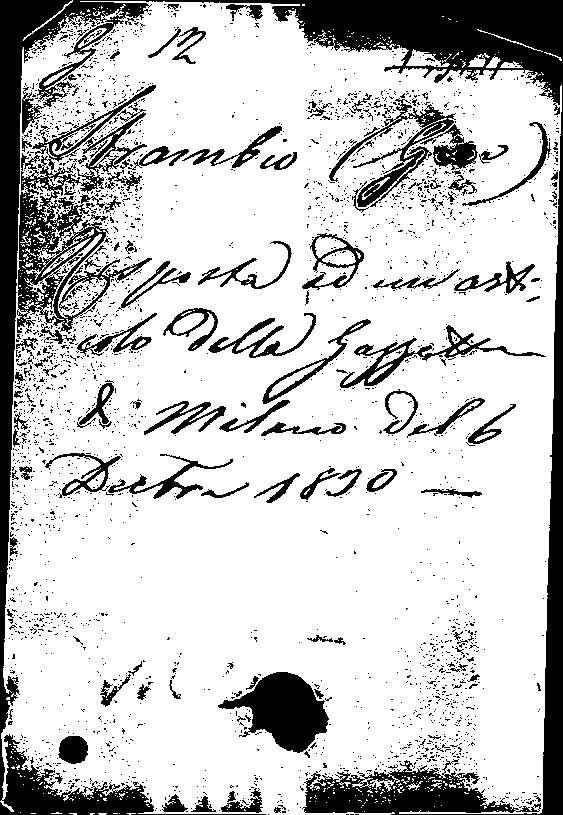 G. 12
Strambio (G
Risposta ad un arti-
colo della Gazzetta
di Milano del 6
Decbre 1830 —